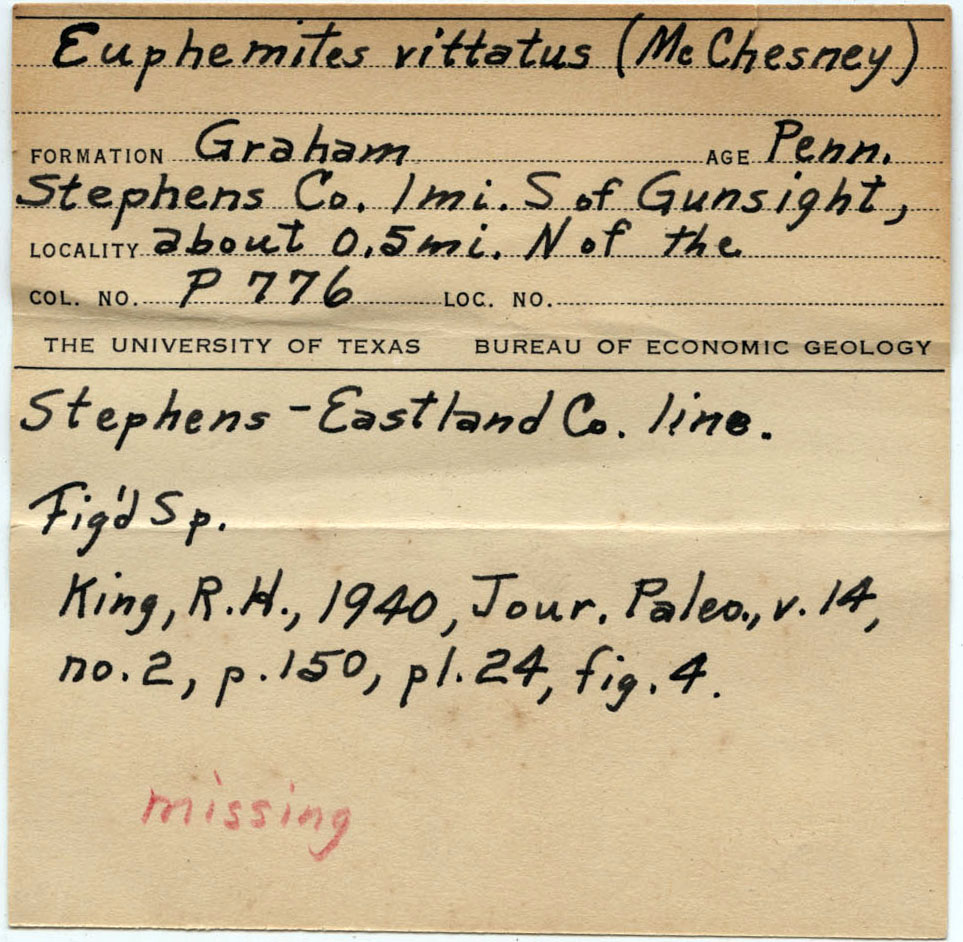 Euphemites vittatus (McChesney)
FORMATION Graham AGE Penn.
Stephens Co. 1mi. S of Gunsight,
LOCALITY about 0.5mi. N of the
COL. NO. P 776 LOC. NO.
THE UNIVERSITY OF TEXAS BUREAU OF ECONOMIC GEOLOGY
Stephens - Eastland Co. line.
Fig'd Sp.
King, R.H., 1940, Jour. Paleo., v. 14,
no. 2, p. 150, pl. 24, fig. 4.
missing